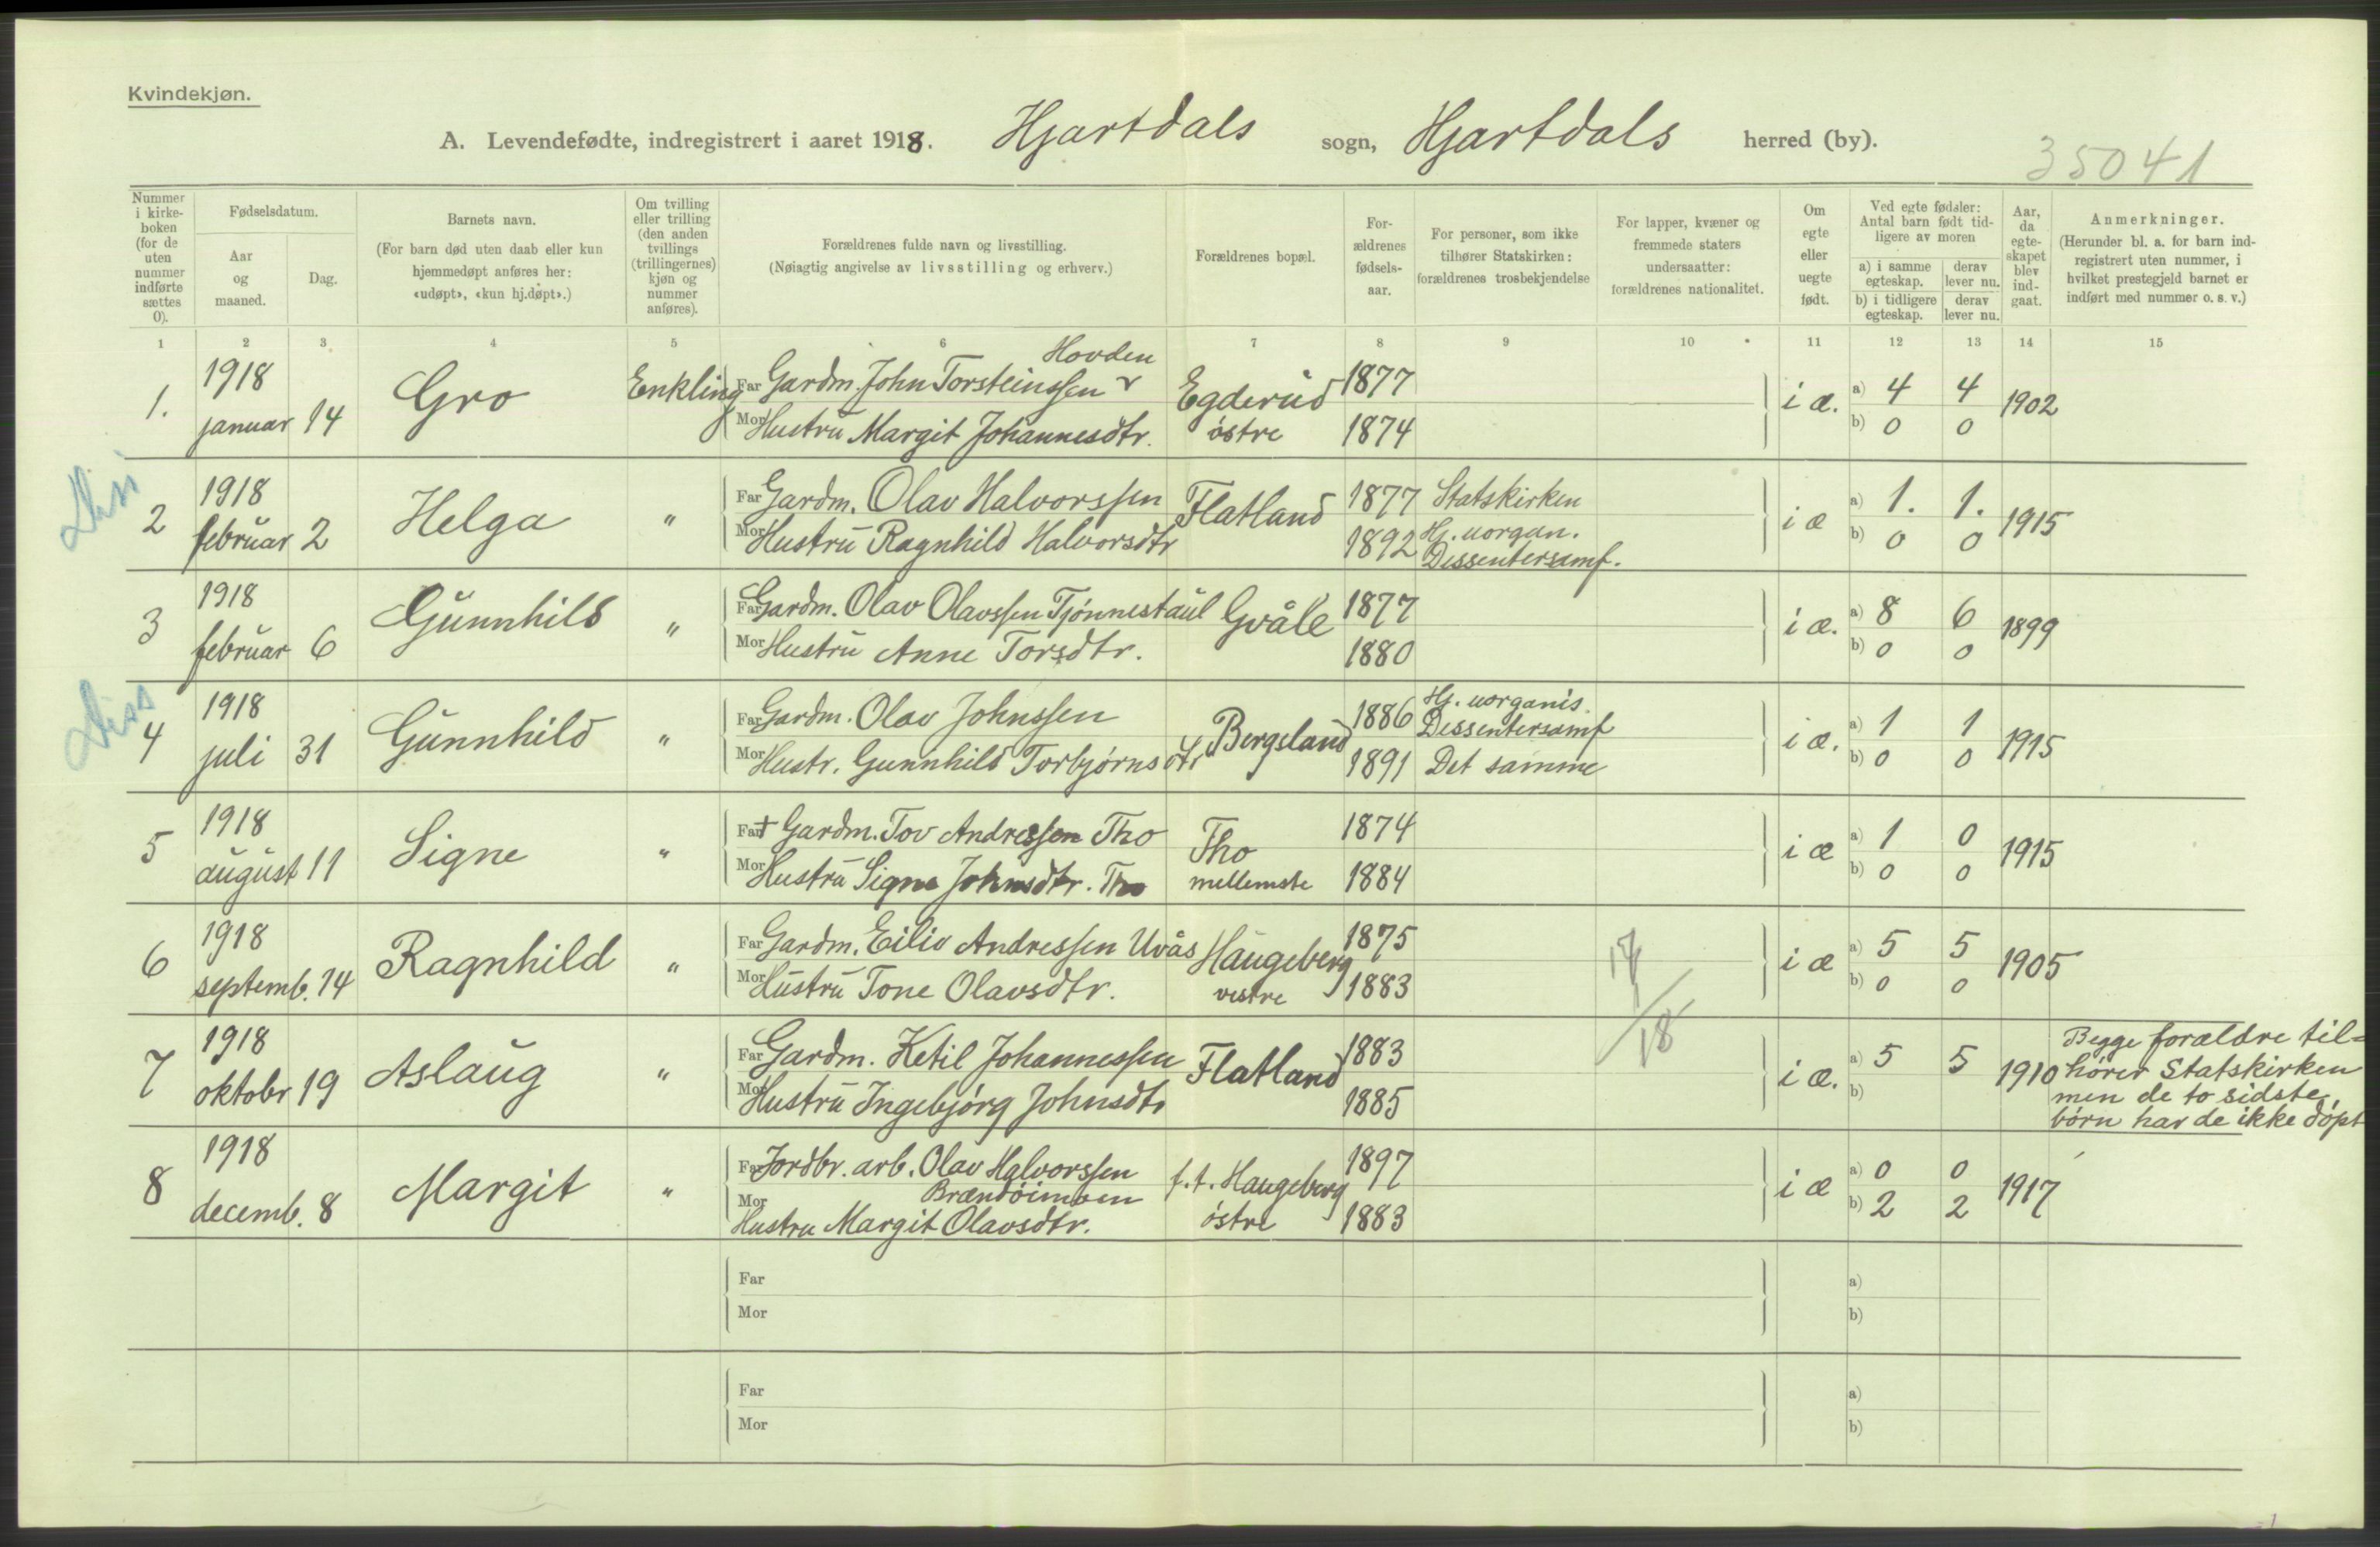 Kvindekjøn.
A. Levendefødte, indregistrert i aaret 1918. Hjartdals sogn, Hjartdals herred (by).
35041
Nummer i kirke-boken (for de uten nummer indførte sættes 0).
Fødselsdatum.
Aar og maaned.
Dag.
Barnets navn.
(For barn død uten daab eller kun hjemmedøpt anføres her: «udøpt», «kun hj.døpt».)
Om tvilling eller trilling (den anden tvillings (trillingernes) kjøn og nummer anføres).
Forældrenes fulde navn og livsstilling.
(Nøiagtig angivelse av livsstilling og erhverv.)
Forældrenes bopæl.
For-ældrenes fødsels-aar.
For personer, som ikke tilhører Statskirken: forældrenes trosbekjendelse
For lapper, kvæner og fremmede staters undersaatter: forældrenes nationalitet.
Om egte eller uegte født.
Ved egte fødsler: Antal barn født tid-ligere av moren
a) i samme egteskap. derav lever nu.
b) i tidligere egteskap. derav lever nu.
Aar, da egte-skapet blev ind-gaat.
Anmerkninger.
(Herunder bl. a. for barn ind-registrert uten nummer, i hvilket prestegjeld barnet er indført med nummer o. s. v.)
1 2 3 4 5 6 7 8 9 10 11 12 13 14 15
Hovden
1. 1918 januar 14 Gro Enkling Far Gardm. John Torsteinssen Egderud østre 1877 i æ. a) 4 4 1902
Mor Hustru Margit Johannesdtr. 1874 b) 0 0
Diss
2 1918 februar 2 Helga " Far Gardm. Olav Halvorssen Flatland 1877 Statskirken i æ a) 1. 1. 1915
Mor Hustru Ragnhild Halvorsdtr 1892 Hj. uorgan. Dissentersamf. b) 0 0
3 1918 februar 6 Gunnhild " Far Gardm. Olav Olavssen Tjønnestaul Gvåle 1877 i æ. a) 8 6 1899
Mor Hustru Anne Torsdtr. 1880 b) 0 0
Diss
4 1918 juli 31 Gunnhild " Far Gardm. Olav Johnssen Bergsland 1886 Hj. uorganis. Dissentersamf i æ. a) 1 1 1915
Mor Hustr. Gunnhild Torbjørnsdtr 1891 Det samme b) 0 0
5 1918 august 11 Signe " Far + Gardm. Tov Andressen Tho Tho mellemste 1874 i æ a) 1 0 1915
Mor Hustru Signe Johnsdtr. Tho 1884 b) 0 0
6 1918 septemb. 14 Ragnhild " Far Gardm. Eiliv Andressen Uvås Haugeberg vestre 1875 i æ a) 5 5 1905
Mor Hustru Tone Olavsdtr. 1883 b) 0 0
18
7 1918 oktobr 19 Aslaug " Far Gardm. Ketil Johannessen Flatland 1883 i æ. a) 5 5 1910
Mor Hustru Ingebjørg Johnsdtr 1885 b)
Begge forældre til=
hører Statskirken
men de to sidste
børn har de ikke døpt
8 1918 decemb. 8 Margit " Far Jordbr. arb. Olav Halvorssen Brændöimoen f. t. Haugeberg østre 1897 i æ a) 0 0 1917
Mor Hustru Margit Olavsdtr. 1883 b) 2 2
Far a)
Mor b)
Far a)
Mor b)